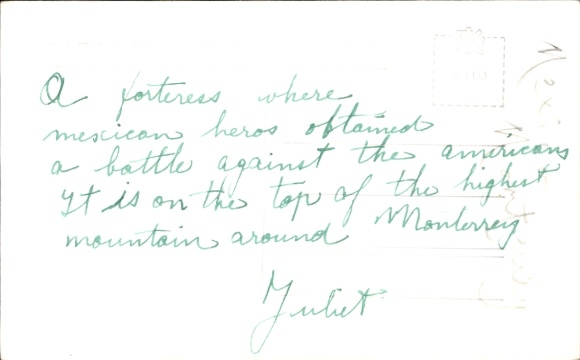 A forteress where
mexican heros obtained
a battle against the americans
It is on the top of the highest
mountain around Monterrey
Juliet